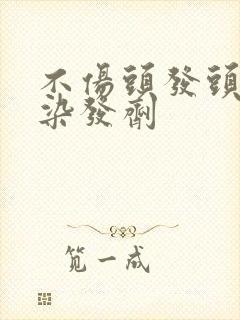 不傷頭發頭
染發劑
笕一成